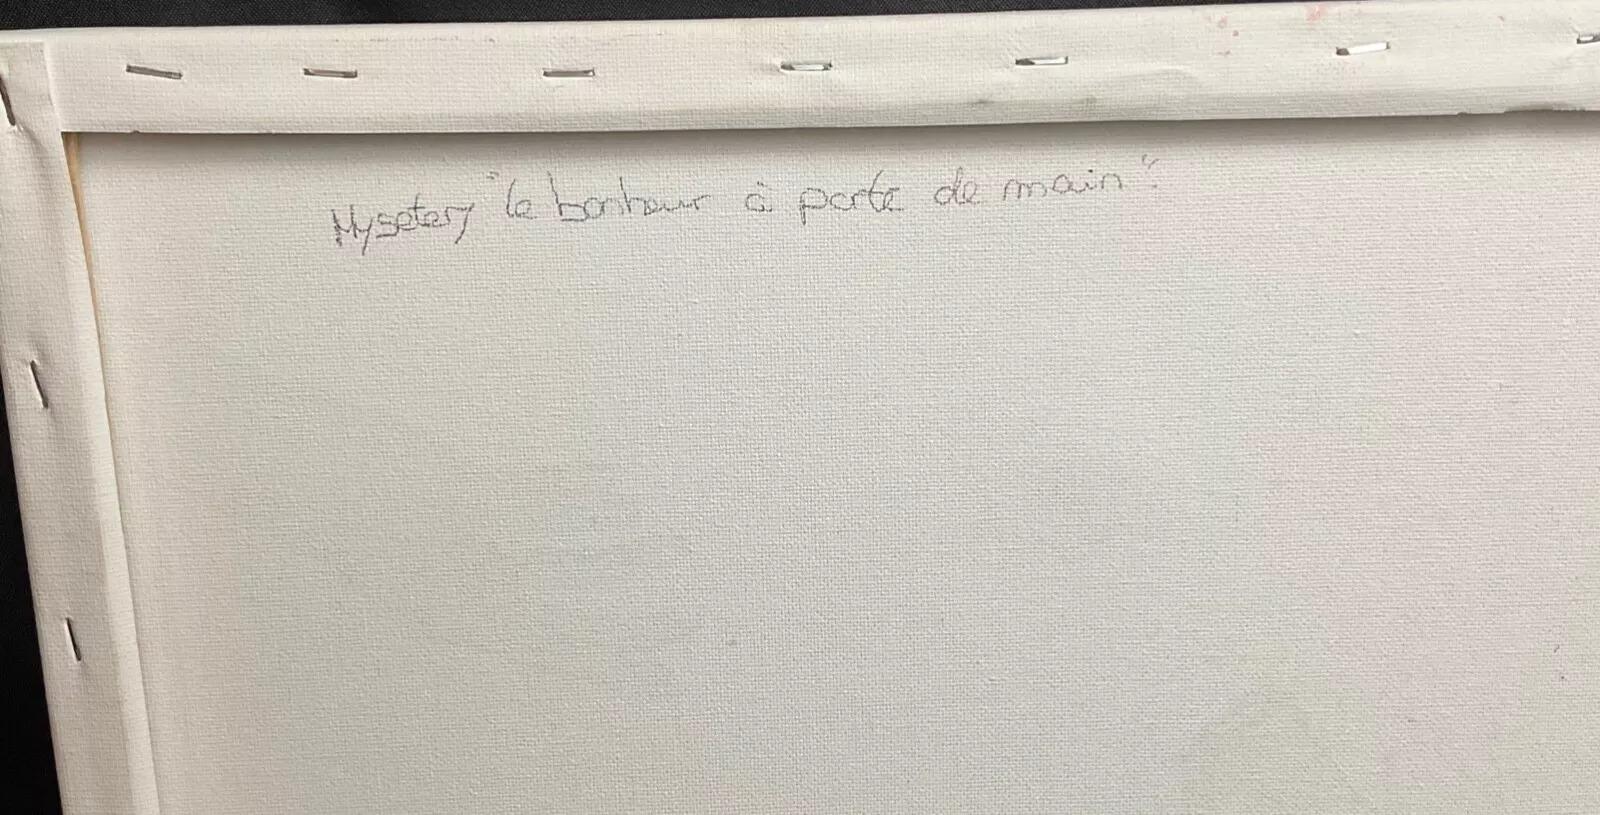 Mysetery "le bonheur à porte de main".